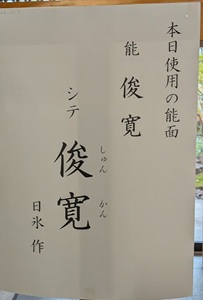 本日使用の能面
能 俊寛
シテ 俊寛
しゅん かん
日氷 作